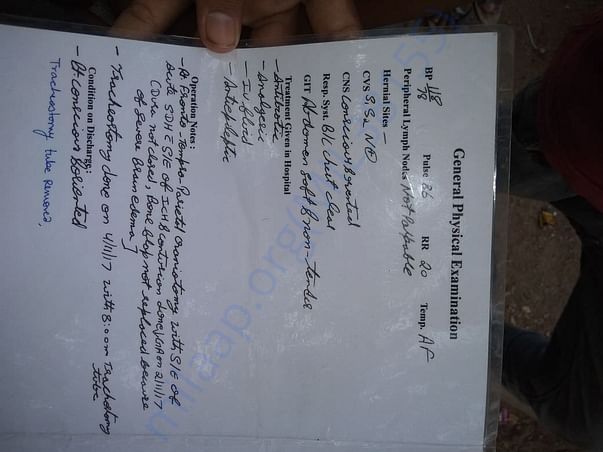 General Physical Examination
BP 118/78 Pulse 86 RR 20 Temp. AF
Peripheral Lymph Nodes Not Palpable
Hernial Sites -
CVS S1S2 N
CNS Conscious & oriented
Resp. Syst. B/L chest clear
GIT Abdomen soft & non-tender
Treatment Given in Hospital
- Antibiotic
- Analgesic
- I.V fluid
- Antiepileptic
Operation Notes :
- Fronto-Temporo Parietal craniotomy with S/E of
Acute SDH & S/E of ICH & contusion done on 2/11/17
(Dura not closed, Bone flap not replaced because
of severe Brain edema]
- Tracheostomy done on 4/11/17 with 8.0 mm Tracheostomy
tube
Condition on Discharge:
- Pt conscious & oriented
Tracheostomy tube removed,
milaap.org